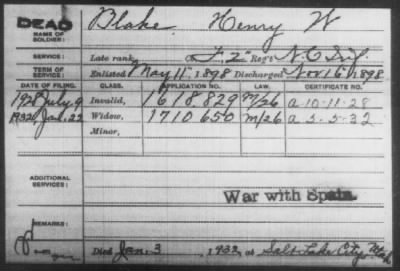 DEAD Blake, Henry W
NAME OF SOLDIER:
SERVICE: Late rank, Co F. 2" Reg't N.C. Inf.
TERM OF SERVICE: Enlisted May 11" 1898 Discharged Nov. 16, 1898
DATE OF FILING. CLASS. APPLICATION NO. LAW. CERTIFICATE NO.
1928 July 9 Invalid, 1618.829 M/26 a-10-11-28
1932 Jan. 22 Widow, 1710 650 M/26 a-5-5-32
Minor,
ADDITIONAL SERVICES: War with Spain.
REMARKS:
Died Jan. 3, 1932, at Salt Lake City, Utah